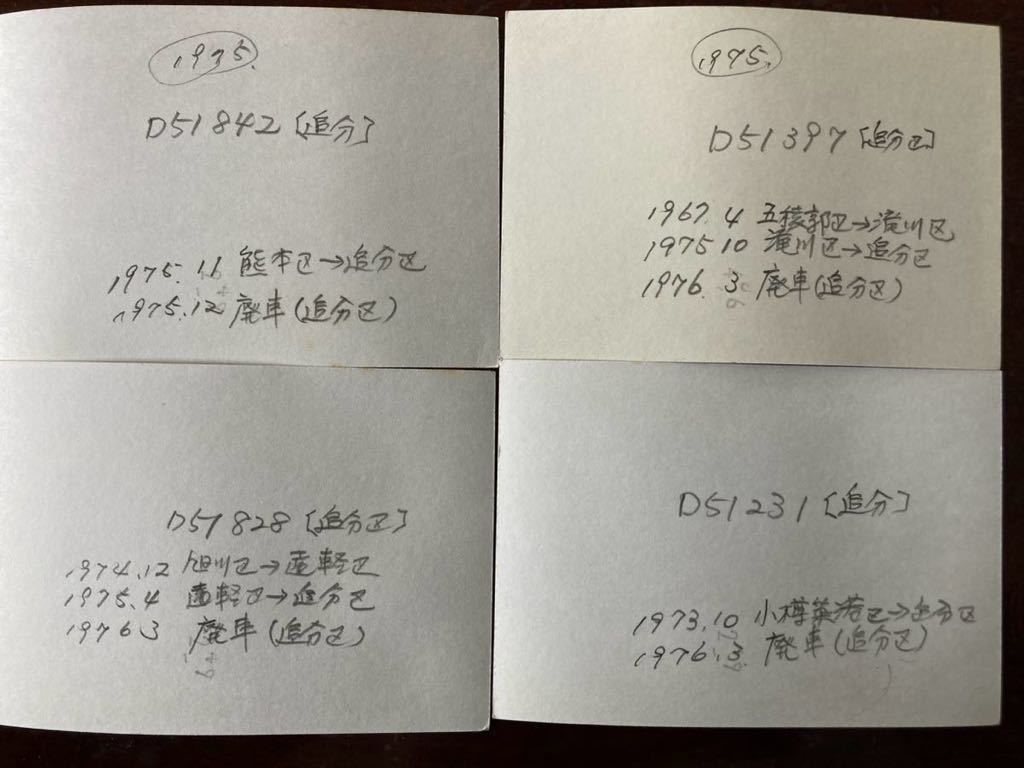 1975.
D51842〔追分〕
1975.11 熊本区→追分区
1975.12 廃車(追分区)
1975.
D51397〔追分区〕
1967.4 五稜郭区→滝川区
1975 10 滝川区→追分区
1976.3 廃車(追分区)
D51828〔追分区〕
1974.12 旭川区→遠軽区
1975.4 遠軽区→追分区
1976 3 廃車(追分区)
D51231〔追分〕
1973.10 小樽築港区→追分区
1976.3 廃車(追分区)